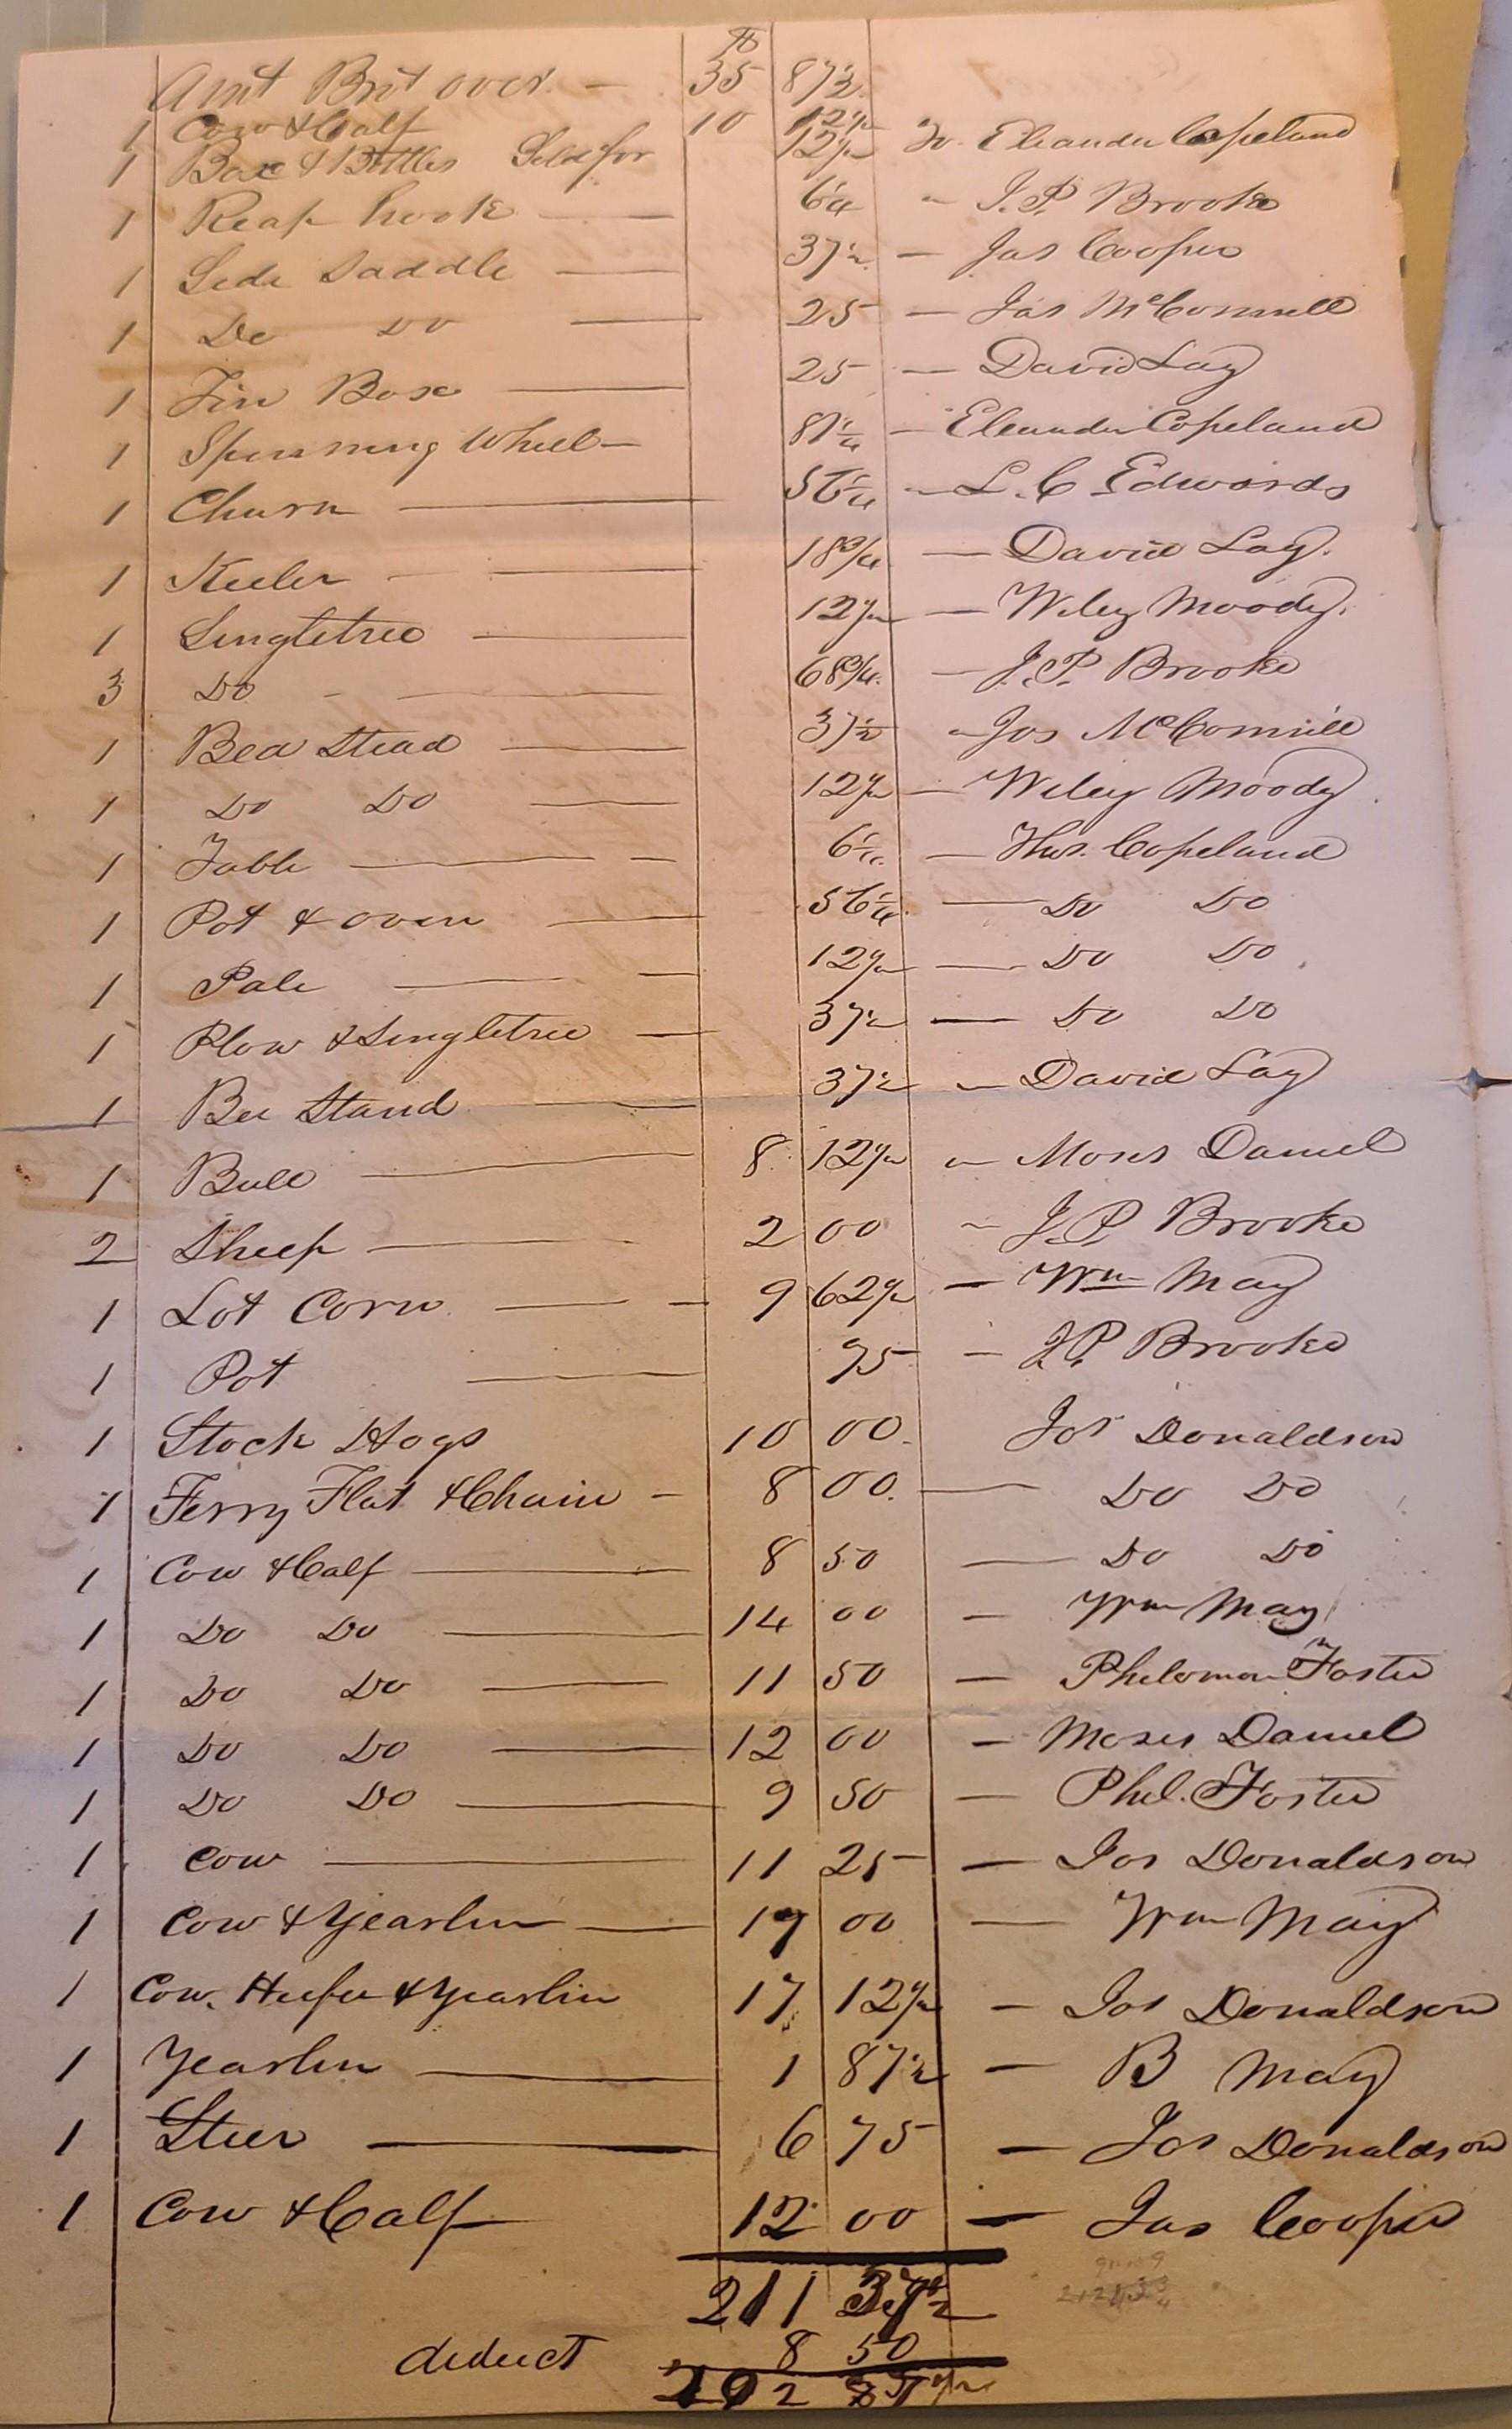 $
Amt Brt over — 35 87½
1 Cow & Calf 10 12½
1 Box & Bottles Sold for 12½ To Eleander Copeland
1 Reap hook — 6¼ " J. P. Brooke
1 Side Saddle — 37½ — Jas Cooper
1 Do Do — 25 — Jas McConnell
1 Tin Box — 25 — David Lay
1 Spinning Wheel — 81¼ — Eleander Copeland
1 Churn — 56¼ — L. C Edwards
1 Keeler — 18¾ — David Lay.
1 Singletree — 12½ — Wiley Moody.
3 Do — 68¾ — J. P. Brooke
1 Bead Stead — 37½ — Jos McConnell
1 Do Do — 12½ — Wiley Moody
1 Table — 6¼ — Thos. Copeland
1 Pot & oven — 56¼ — Do Do
1 Pale — 12½ — Do Do
1 Plow & Singletree — 37½ — Do Do
1 Bee Stand — 37½ — David Lay
1 Bull — 8 12½ — Moses Daniel
2 Sheep — 2 00 — J. P. Brooke
1 Lot Corn — 9 62½ — Wm May
1 Pot — 75 — J P. Brooke
1 Stock Hogs 10 00 Jos Donaldson
1 Ferry Flat & Chain — 8 00 — Do Do
1 Cow & Calf — 8 50 — Do Do
1 Do Do — 14 00 — Wm May
1 Do Do — 11 50 — Philemon Foster
1 Do Do — 12 00 — Moses Daniel
1 Do Do — 9 50 — Phil. Foster
1 Cow — 11 25 — Jos Donaldson
1 Cow & Yearlin — 17 00 — Wm May
1 Cow. Heifer & Yearlin 17 12½ — Jos Donaldson
1 Yearlin — 1 87½ — B May
1 Steer — 6 75 — Jos Donaldson
1 Cow & Calf 12 00 — Jas Cooper
211 37½
deduct 8 50
202 87½